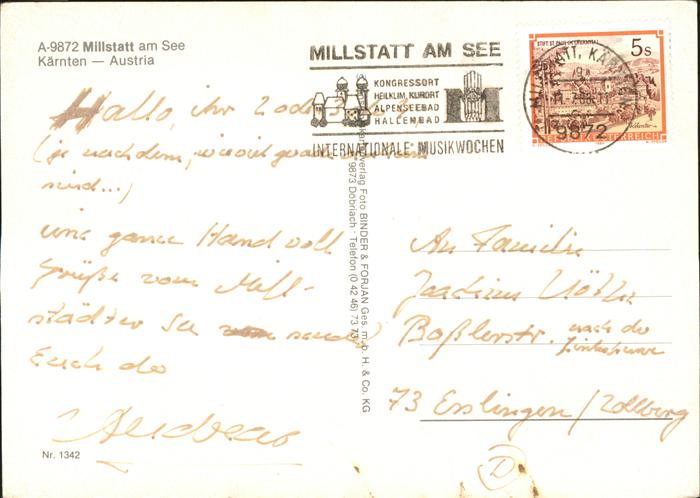 A-9872 Millstatt am See
Kärnten — Austria
Hallo, ihr 2 oder 3
(je nachdem, wieviel grade
sind...)
eine ganze Hand voll
Grüße vom Mill-
städter See sendet
Euch der
Andreas
Nr. 1342
MILLSTATT AM SEE
KONGRESSORT
HEILKLIM. KURORT
ALPENSEEBAD
HALLENBAD
INTERNATIONALE MUSIKWOCHEN
verlag Foto BINDER & FORJAN Ges. m. b. H. & Co. KG
9873 Döbriach · Telefon (0 42 46) 73 73
STIFT ST. PAUL IM LAVANTTAL
5 S
REPUBLIK ÖSTERREICH
MILLSTATT, KÄRNTEN
9872
An Familie
Joachim
Baßlerstr. nach der
Linkskurve
73 Esslingen / Zollberg
D